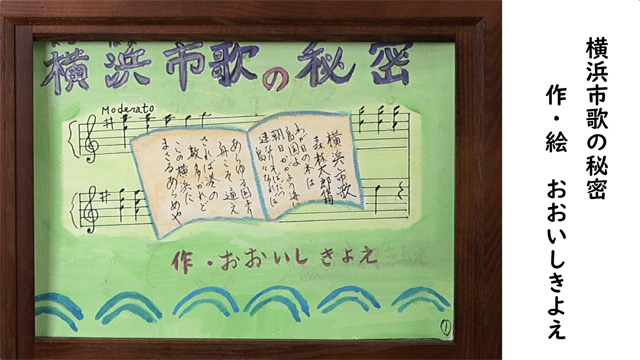 横浜市歌の秘密
Moderato
横浜市歌
森林太郎
わが日の本は
島国よ
朝日かがよう海に
連なりそばだつ
島々なれば
あらゆる国より
舟こそ通え
されば港の
数多かれど
この横浜に
まさるあらめや
作・おおいしきよえ
1
横浜市歌の秘密
作・絵 おおいしきよえ